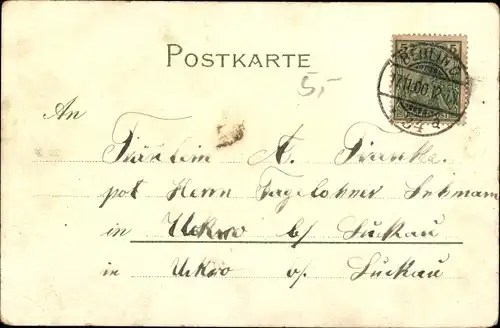 POSTKARTE
5 5
BERLIN C
5,-
17.11.00.12-1N
54 a
An
Fräulein A. Franke.
pot Herrn Tagelohner Lehmann
in Uckro b/ Luckau
in Uckro b/. Luckau